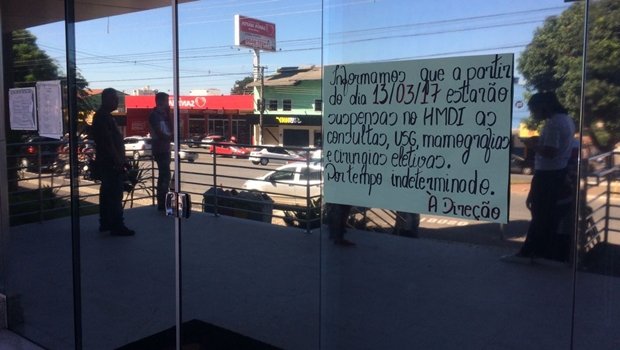 Informamos que a partir
do dia 13/03/17 estarão
suspensas no HMDI as
consultas, USG, mamografias
e cirurgias eletivas.
Por tempo indeterminado.
A Direção